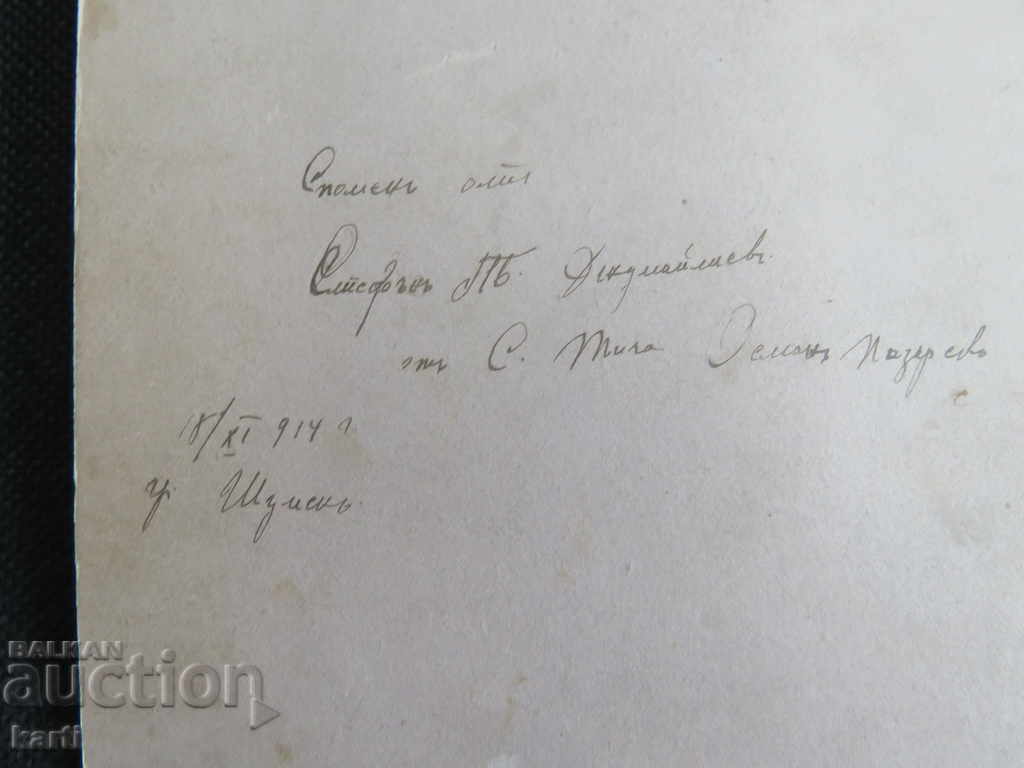 Споменъ отъ
Стефанъ
отъ С. Тича Османъ Пазарско
18/XI 914 г
гр. Шуменъ.
BALKAN
auction
karti